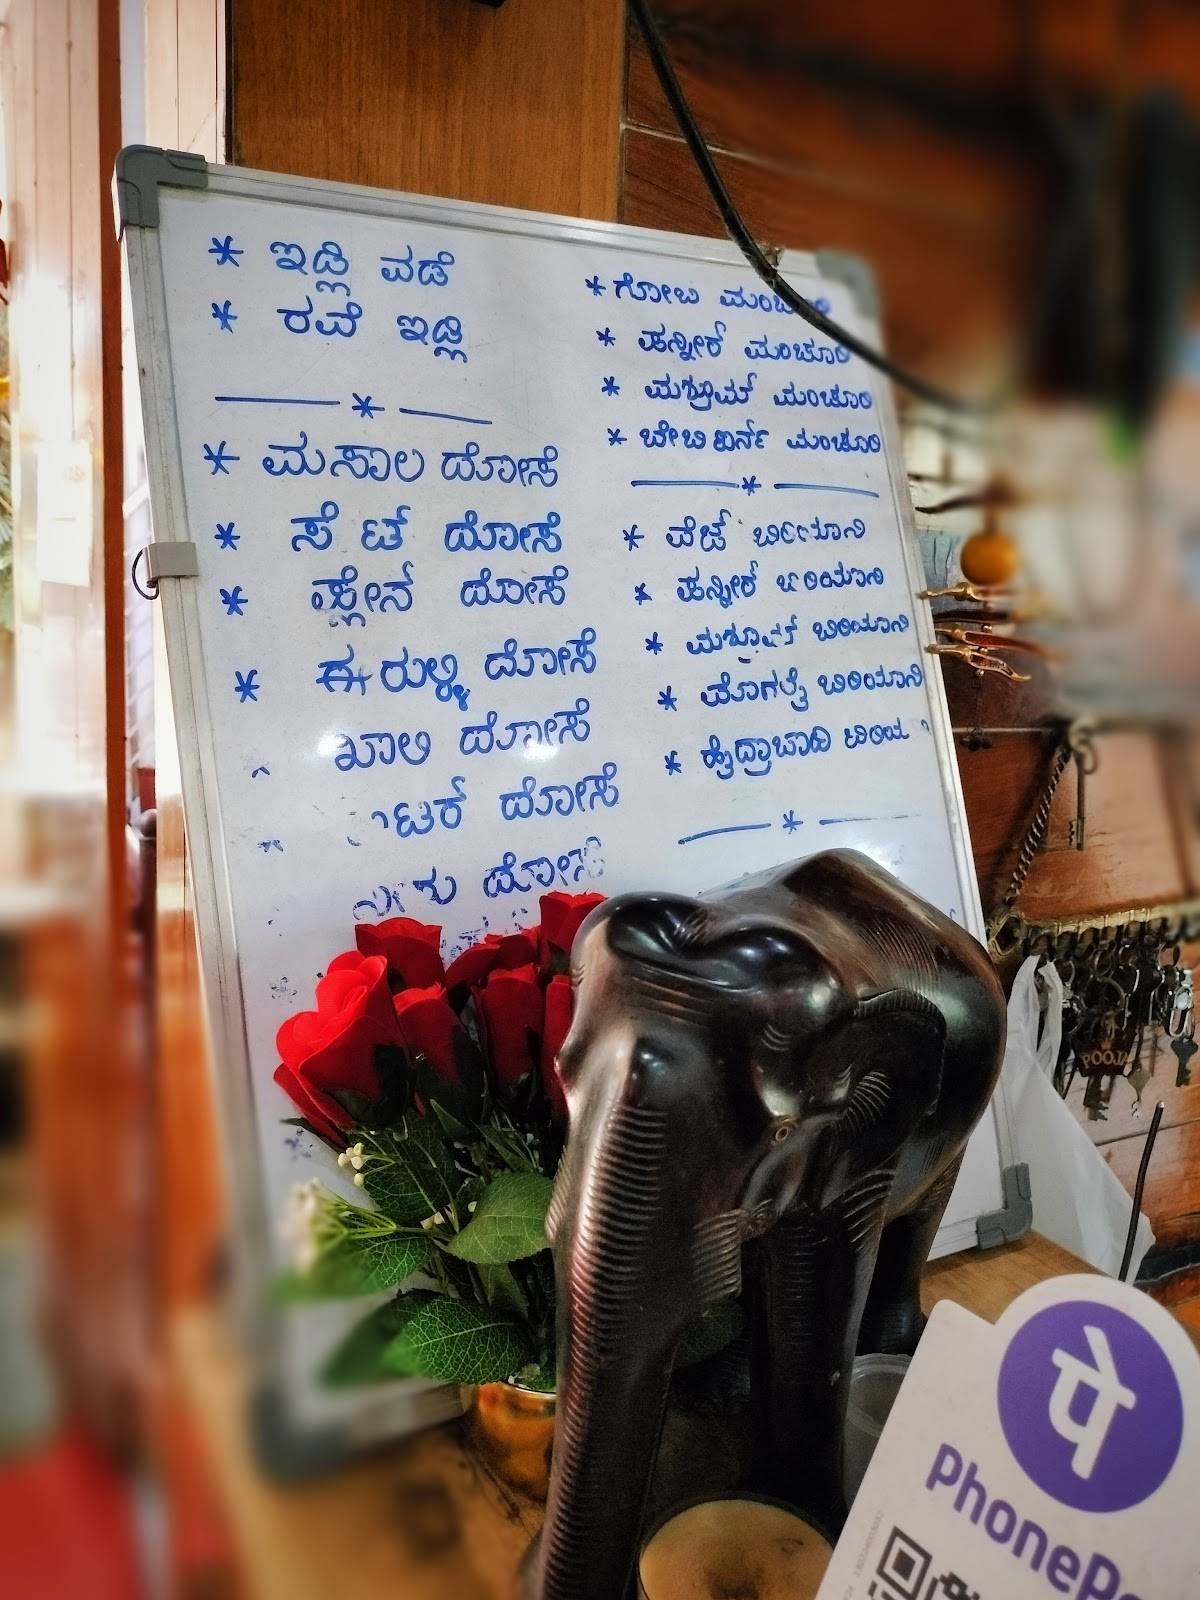 * ಇಡ್ಲಿ ವಡೆ
* ರವೆ ಇಡ್ಲಿ
* ಮಸಾಲ ದೋಸೆ
* ಸೆಟ್ ದೋಸೆ
* ಪ್ಲೇನ್ ದೋಸೆ
* ಈರುಳ್ಳಿ ದೋಸೆ
ಖಾಲಿ ದೋಸೆ
ದೋಸೆ
ದೋಸೆ
* ಗೋಬಿ ಮಂಚೂರಿ
* ಪನ್ನೀರ್ ಮಂಚೂರಿ
* ಮಶ್ರೂಮ್ ಮಂಚೂರಿ
* ಬೇಬಿ ಕಾರ್ನ್ ಮಂಚೂರಿ
* ವೆಜ್ ಬಿರಿಯಾನಿ
* ಪನ್ನೀರ್ ಬಿರಿಯಾನಿ
* ಮಶ್ರೂಮ್ ಬಿರಿಯಾನಿ
* ಮೊಗಲೈ ಬಿರಿಯಾನಿ
* ಹೈದ್ರಾಬಾದಿ
POOJA
पे
PhonePe